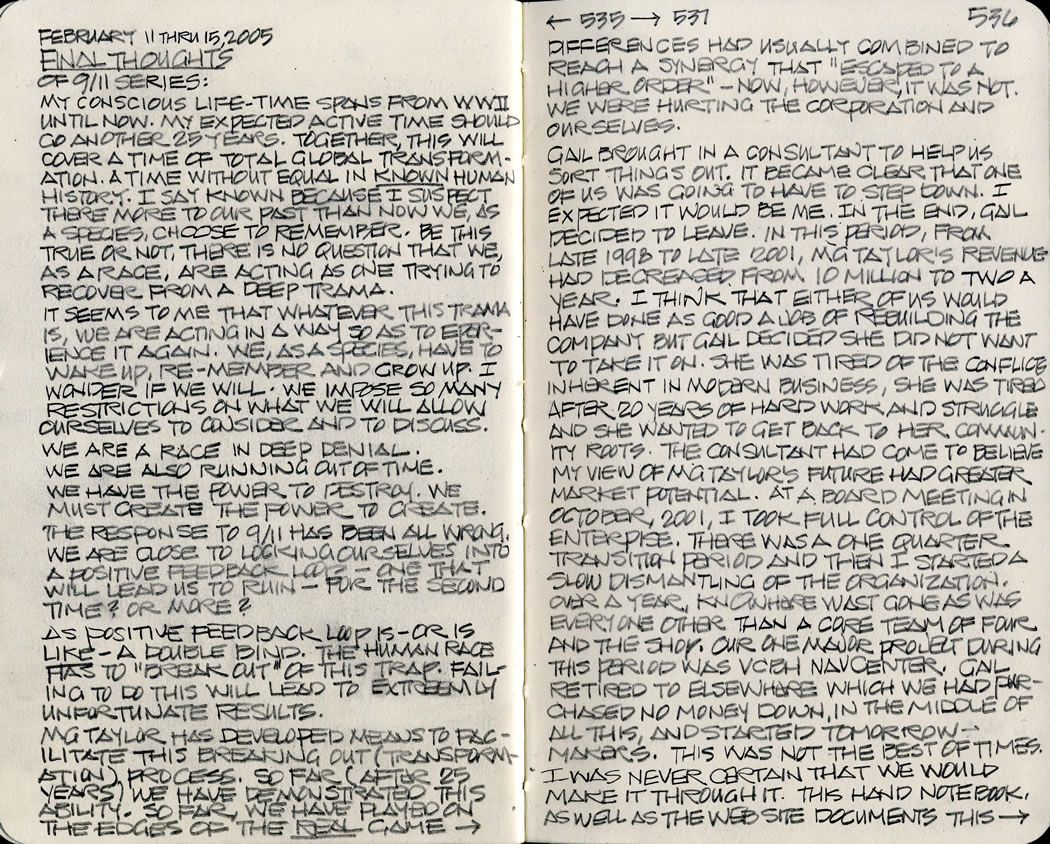 FEBRUARY 11 THRU 15, 2005
FINAL THOUGHTS
OF 9/11 SERIES:
MY CONSCIOUS LIFE-TIME SPANS FROM WWII
UNTIL NOW. MY EXPECTED ACTIVE TIME SHOULD
GO ANOTHER 25 YEARS. TOGETHER, THIS WILL
COVER A TIME OF TOTAL GLOBAL TRANSFORM-
ATION. A TIME WITHOUT EQUAL IN KNOWN HUMAN
HISTORY. I SAY KNOWN BECAUSE I SUSPECT
THERE MORE TO OUR PAST THAN NOW WE, AS
A SPECIES, CHOOSE TO REMEMBER. BE THIS
TRUE OR NOT, THERE IS NO QUESTION THAT WE,
AS A RACE, ARE ACTING AS ONE TRYING TO
RECOVER FROM A DEEP TRAMA.
IT SEEMS TO ME THAT WHATEVER THIS TRAMA
IS, WE ARE ACTING IN A WAY SO AS TO EXPER-
IENCE IT AGAIN. WE, AS A SPECIES, HAVE TO
WAKE UP, RE-MEMBER AND GROW UP. I
WONDER IF WE WILL. WE IMPOSE SO MANY
RESTRICTIONS ON WHAT WE WILL ALLOW
OURSELVES TO CONSIDER AND TO DISCUSS.
WE ARE A RACE IN DEEP DENIAL.
WE ARE ALSO RUNNING OUT OF TIME.
WE HAVE THE POWER TO DESTROY. WE
MUST CREATE THE POWER TO CREATE.
THE RESPONSE TO 9/11 HAS BEEN ALL WRONG.
WE ARE CLOSE TO LOCKING OURSELVES INTO
A POSITIVE FEEDBACK LOOP - ONE THAT
WILL LEAD US TO RUIN - FOR THE SECOND
TIME? OR MORE?
AS POSITIVE FEEDBACK LOOP IS - OR IS
LIKE - A DOUBLE BIND. THE HUMAN RACE
HAS TO "BREAK OUT" OF THIS TRAP. FAIL-
ING TO DO THIS WILL LEAD TO EXTREEMLY
UNFORTUNATE RESULTS.
MG TAYLOR HAS DEVELOPED MEANS TO FAC-
ILITATE THIS BREAKING OUT (TRANSFORM-
ATION) PROCESS. SO FAR (AFTER 25
YEARS) WE HAVE DEMONSTRATED THIS
ABILITY. SO FAR, WE HAVE PLAYED ON
THE EDGES OF THE REAL GAME →
← 535 → 537
536
DIFFERENCES HAD USUALLY COMBINED TO
REACH A SYNERGY THAT "ESCAPED TO A
HIGHER ORDER" - NOW, HOWEVER, IT WAS NOT.
WE WERE HURTING THE CORPORATION AND
OURSELVES.
GAIL BROUGHT IN A CONSULTANT TO HELP US
SORT THINGS OUT. IT BECAME CLEAR THAT ONE
OF US WAS GOING TO HAVE TO STEP DOWN. I
EXPECTED IT WOULD BE ME. IN THE END, GAIL
DECIDED TO LEAVE. IN THIS PERIOD, FROM
LATE 1998 TO LATE 2001, MG TAYLOR'S REVENUE
HAD DECREASED FROM 10 MILLION TO TWO A
YEAR. I THINK THAT EITHER OF US WOULD
HAVE DONE AS GOOD A JOB OF REBUILDING THE
COMPANY BUT GAIL DECIDED SHE DID NOT WANT
TO TAKE IT ON. SHE WAS TIRED OF THE CONFLICTS
INHERENT IN MODERN BUSINESS, SHE WAS TIRED
AFTER 20 YEARS OF HARD WORK AND STRUGGLE
AND SHE WANTED TO GET BACK TO HER COMMUN-
ITY ROOTS. THE CONSULTANT HAD COME TO BELIEVE
MY VIEW OF MG TAYLOR'S FUTURE HAD GREATER
MARKET POTENTIAL. AT A BOARD MEETING IN
OCTOBER, 2001, I TOOK FULL CONTROL OF THE
ENTERPISE. THERE WAS A ONE QUARTER
TRANSITION PERIOD AND THEN I STARTED A
SLOW DISMANTLING OF THE ORGANIZATION.
OVER A YEAR, KNOWHERE WAST GONE AS WAS
EVERYONE OTHER THAN A CORE TEAM OF FOUR
AND THE SHOP. OUR ONE MAJOR PROJECT DURING
THIS PERIOD WAS VCBH NAVCENTER. GAIL
RETIRED TO ELSEWHERE WHICH WE HAD PUR-
CHASED NO MONEY DOWN, IN THE MIDDLE OF
ALL THIS, AND STARTED TOMORROW-
MAKERS. THIS WAS NOT THE BEST OF TIMES.
I WAS NEVER CERTAIN THAT WE WOULD
MAKE IT THROUGH IT. THIS HAND NOTEBOOK,
AS WELL AS THE WEB SITE DOCUMENTS THIS →